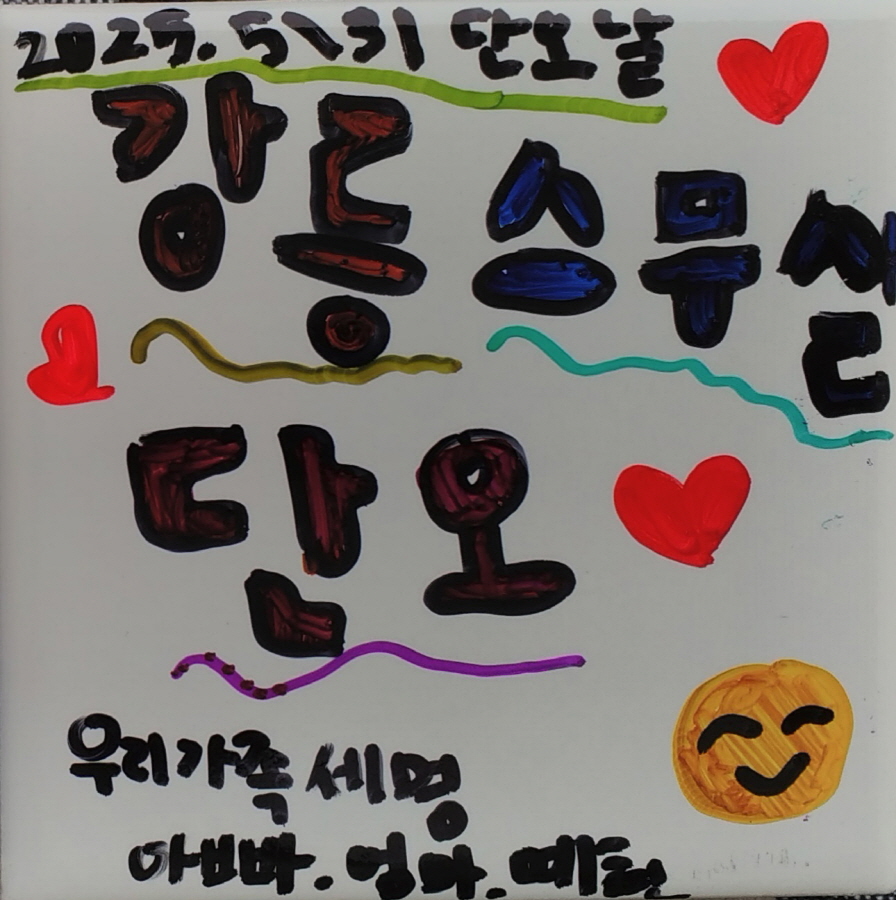 2025. 5\31 단오날
강릉 스무살
단오
우리가족 세명
아빠. 엄마.